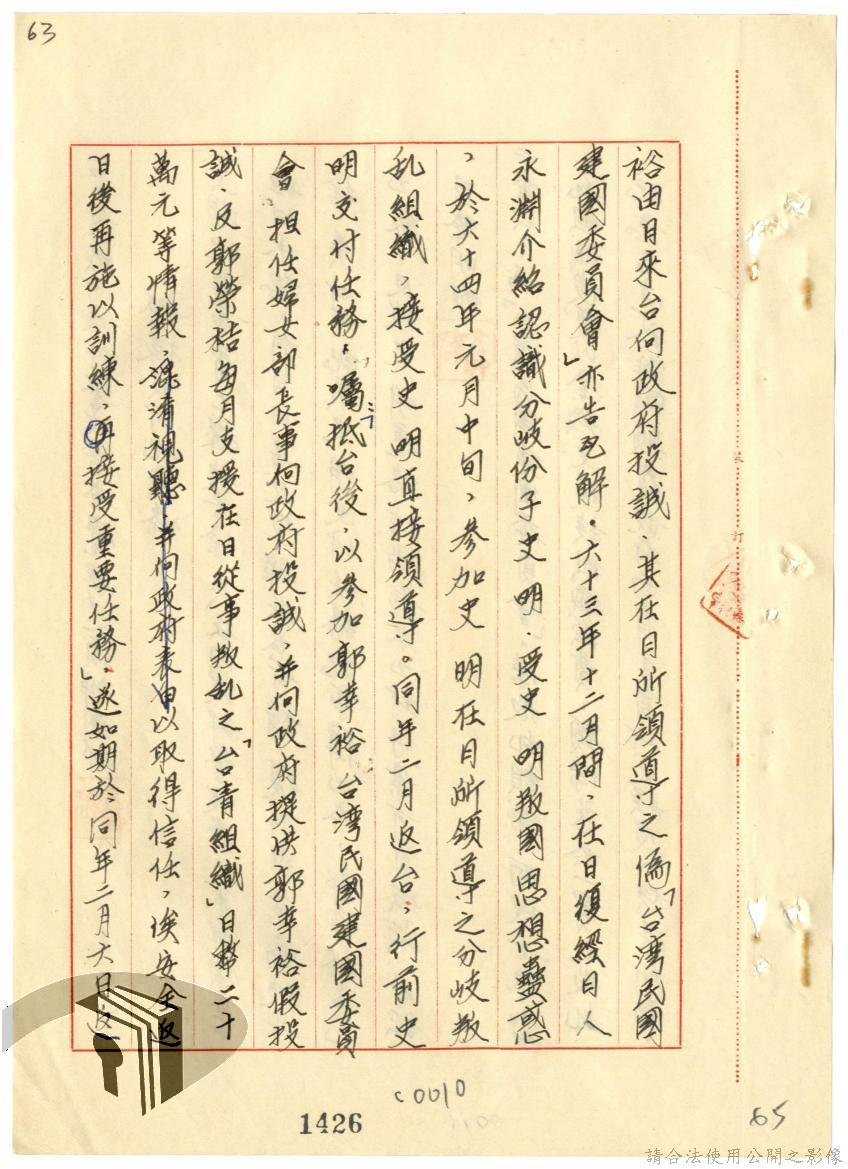 63
裕由日來台向政府投誠、其在日所領導之偽「台湾民國
建國委員會」亦告瓦解。六十三年十二月間，在日復經日人
永淵介紹認識分歧份子史 明，受史 明叛國思想蠱惑
，於六十四年元月中旬，參加史 明在日所領導之分歧叛
乱組織，接受史 明直接領導。同年二月返台，行前史
明交付任務，「囑抵台後，以參加郭幸裕台湾民國建國委員
會，担任婦女部長事向政府投誠，并向政府提供郭幸裕假投
誠，及郭榮桔每月支援在日從事叛乱之「台青組織」日幣二十
萬元等情報，混淆視聽，并向政府表由以取得信任，俟安全返
日後再施以訓練，再接受重要任務」。遂如期於同年二月六日返
裝
訂
線
C0010
1426
65
請合法使用公開之影像